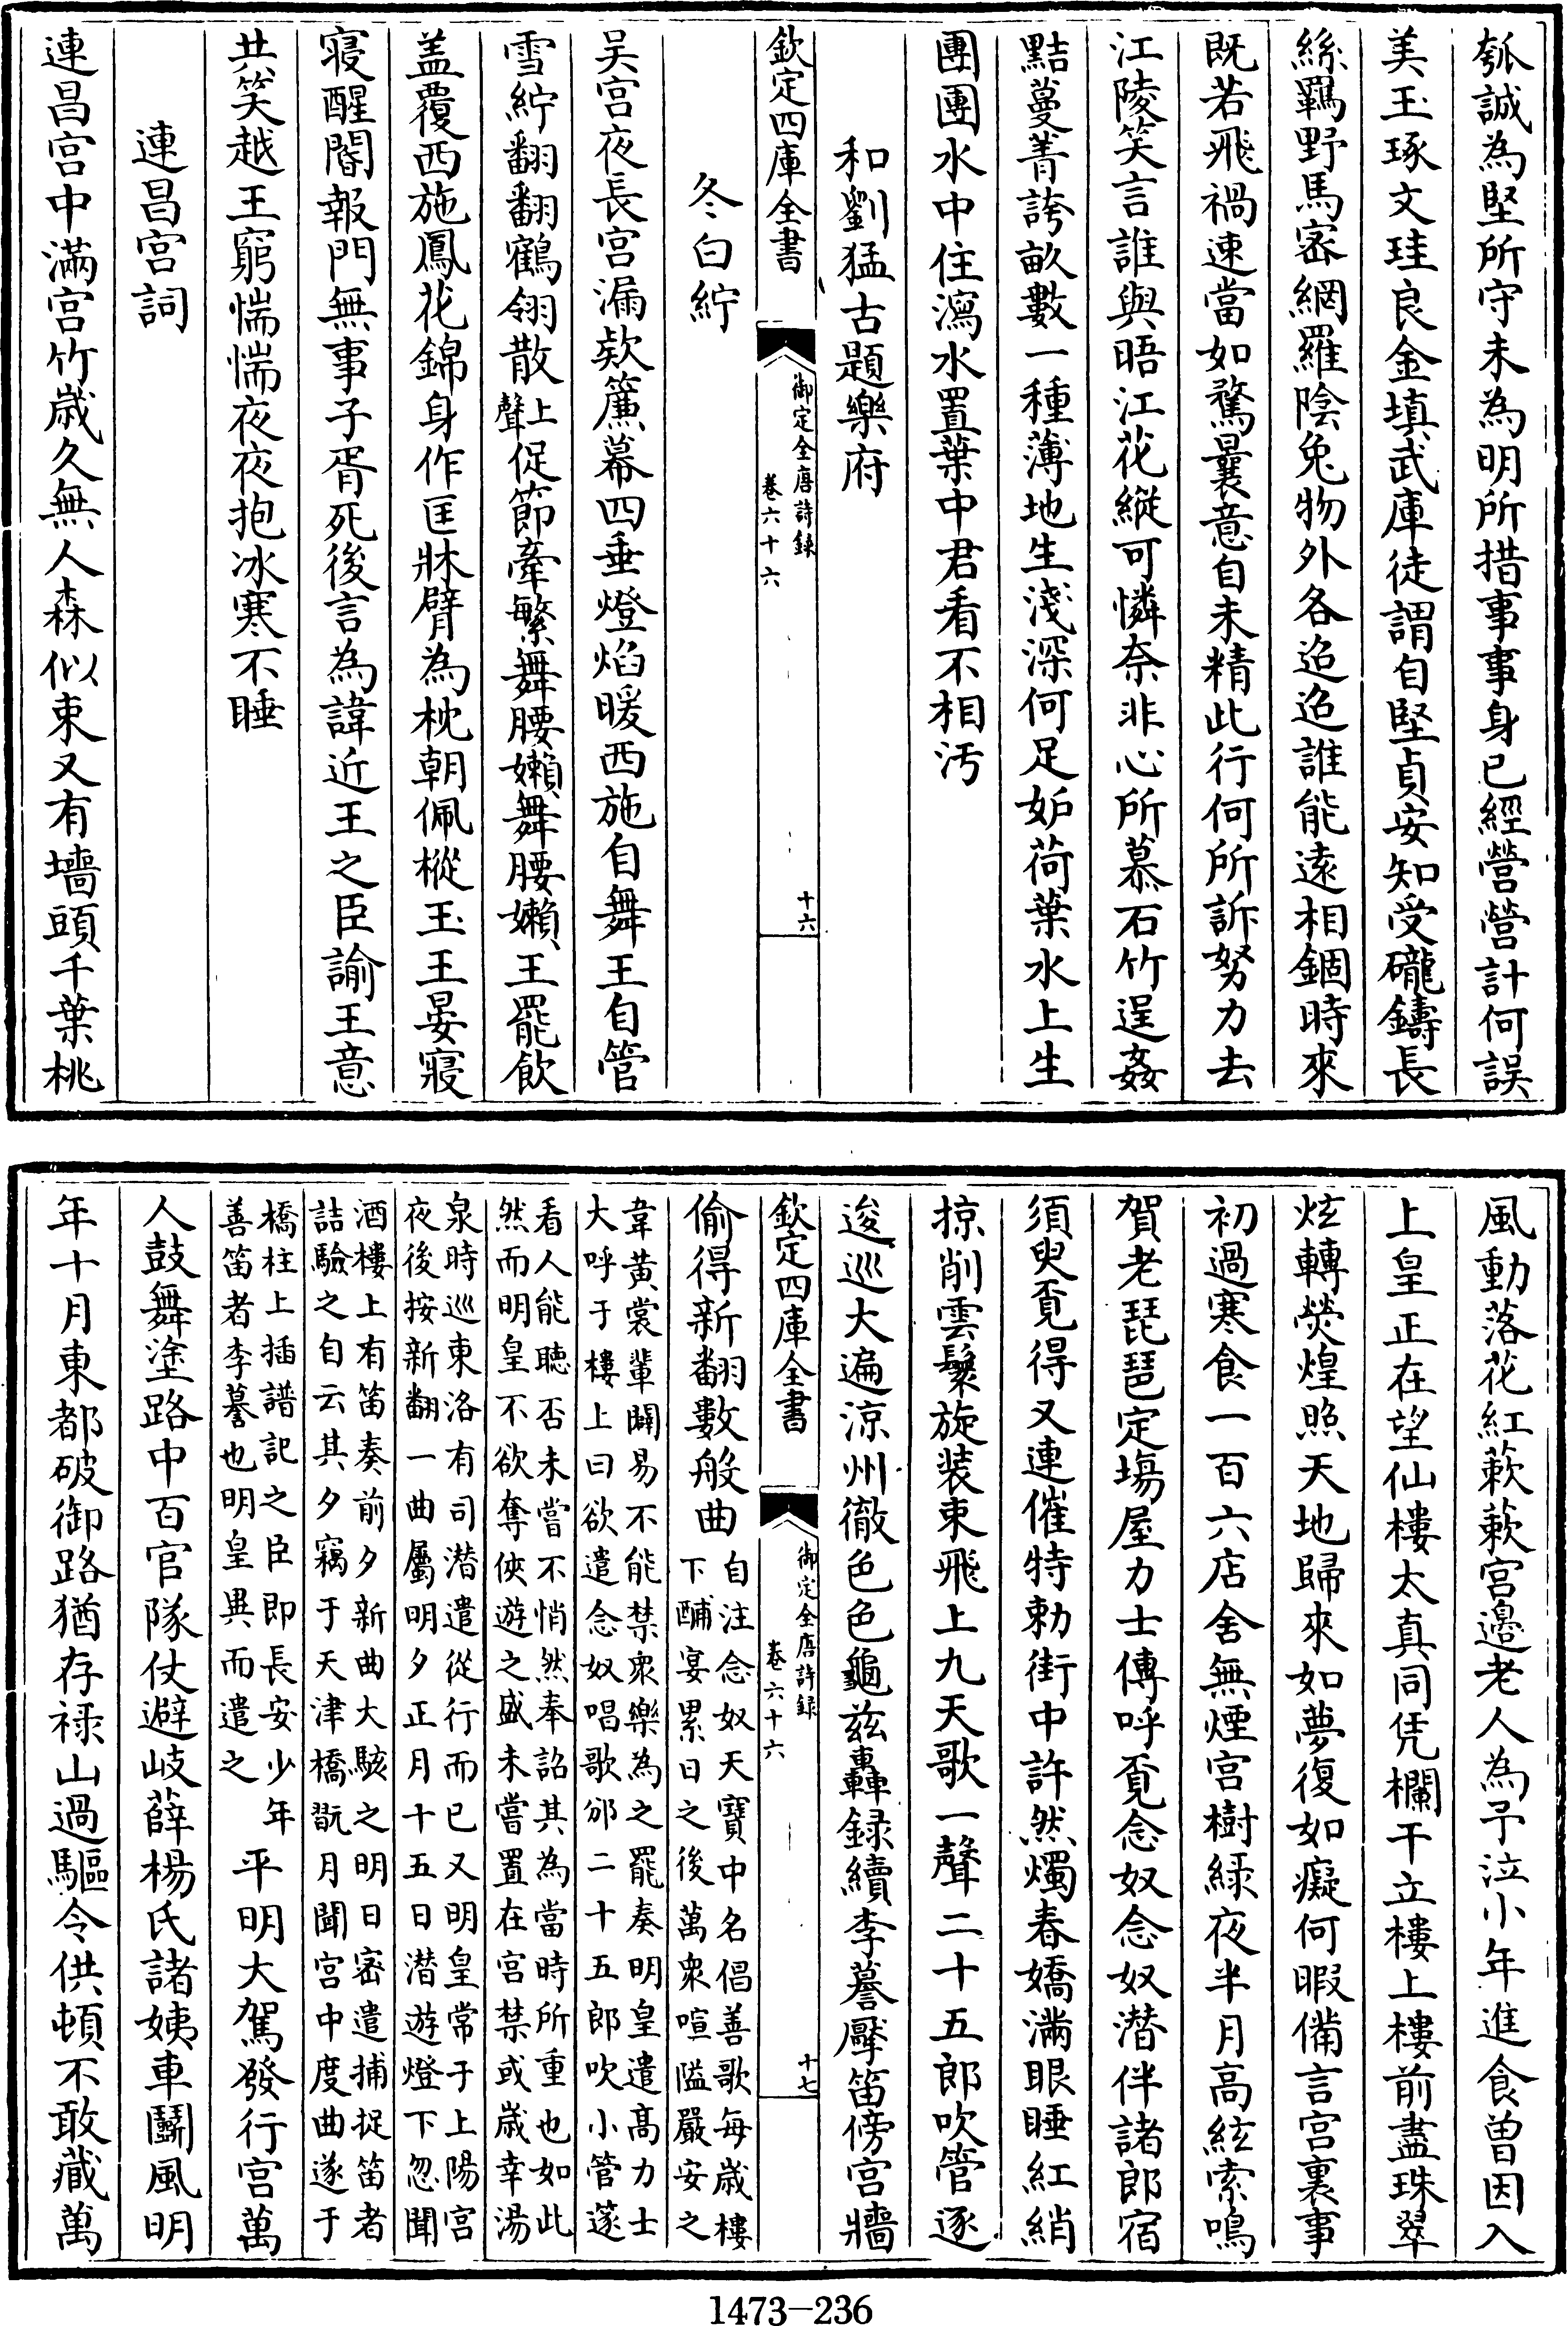 瓠誠為堅所守未為明所措事事身已經營營計何誤
美玉琢文珪良金填武庫徒謂自堅貞安知受礲鑄長
絲羈野馬密網羅陰兔物外各迢迢誰能遠相錮時來
既若飛禍速當如騖曩意自未精此行何所訴努力去
江陵笑言誰與晤江花縱可憐奈非心所慕石竹逞姦
黠蔓菁誇畝數一種薄地生淺深何足妒荷葉水上生
團團水中住瀉水置葉中君看不相汚
和劉猛古題樂府
欽定四庫全書
御定全唐詩録
卷六十六
十六
冬白紵
吴宫夜長宫漏欵簾幕四垂燈焰暖西施自舞王自管
雪紵翻翻鶴翎散上聲促節牽繁舞腰嬾舞腰嬾王罷飲
盖覆西施鳳花錦身作匡牀臂為枕朝佩樅玉王晏寢
寢醒閽報門無事子胥死後言為諱近王之臣諭王意
共笑越王窮惴惴夜夜抱冰寒不睡
連昌宫詞
連昌宫中滿宫竹歲久無人森似束又有墻頭千葉桃
風動落花紅蔌蔌宫邉老人為予泣小年進食曽因入
上皇正在望仙樓太真同凭欄干立樓上樓前盡珠翠
炫轉熒煌照天地歸來如夢復如癡何暇備言宫裏事
初過寒食一百六店舍無煙宫樹緑夜半月高絃索鳴
賀老琵琶定塲屋力士傳呼覔念奴念奴潛伴諸郎宿
須臾覔得又連催特勅街中許然燭春嬌滿眼睡紅綃
掠削雲鬟旋裝束飛上九天歌一聲二十五郎吹管逐
逡巡大遍涼州徹色色龜兹轟録續李謩擪笛傍宫牆
欽定四庫全書
御定全唐詩録
卷六十六
十七
偷得新翻數般曲自注念奴天寶中名倡善歌每歲樓
下酺宴累日之後萬衆喧隘嚴安之
韋黄裳輩闢易不能禁衆樂為之罷奏明皇遣髙力士
大呼于樓上曰欲遣念奴唱歌邠二十五郎吹小管篴
看人能聴否未嘗不悄然奉詔其為當時所重也如此
然而明皇不欲奪俠遊之盛未嘗置在宫禁或歲幸湯
泉時巡東洛有司潛遣從行而已又明皇常于上陽宫
夜後按新翻一曲屬明夕正月十五日潛遊燈下忽聞
酒樓上有笛奏前夕新曲大駭之明日密遣捕捉笛者
詰驗之自云其夕竊于天津橋翫月聞宫中度曲遂于
橋柱上插譜記之臣即長安少年
善笛者李謩也明皇異而遣之平明大駕發行宫萬
人鼓舞塗路中百官隊仗避岐薛楊氏諸姨車鬬風明
年十月東都破御路猶存禄山過驅令供頓不敢藏萬
1473—236